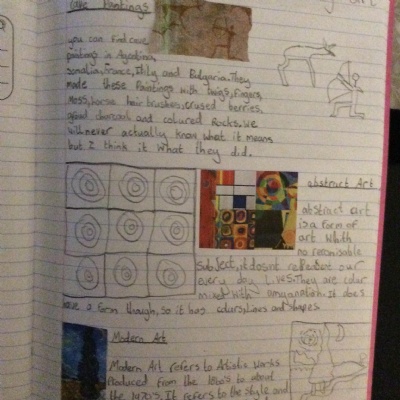 Cave Paintings
you can find cave
paintings in Argentina,
somalia, france, Itily and Bulgaria. They
made these Paintings with twigs, fingers,
Moss, horse hair brushes, crused berries,
charcoal and coloured Rocks. we
will never actually know what it means
but I think it what they did.
abstract Art
abstract art
is a form of
art whith
no reconisable
subject, it dosint represent our
every day L.IVES. They are color
mixed with It does
have a form though, so it has colours, lines and shapes
Modern Art
Modern Art refers to Artistic works
Produced from the 1860's to about
the 1970's. It refers to the style and